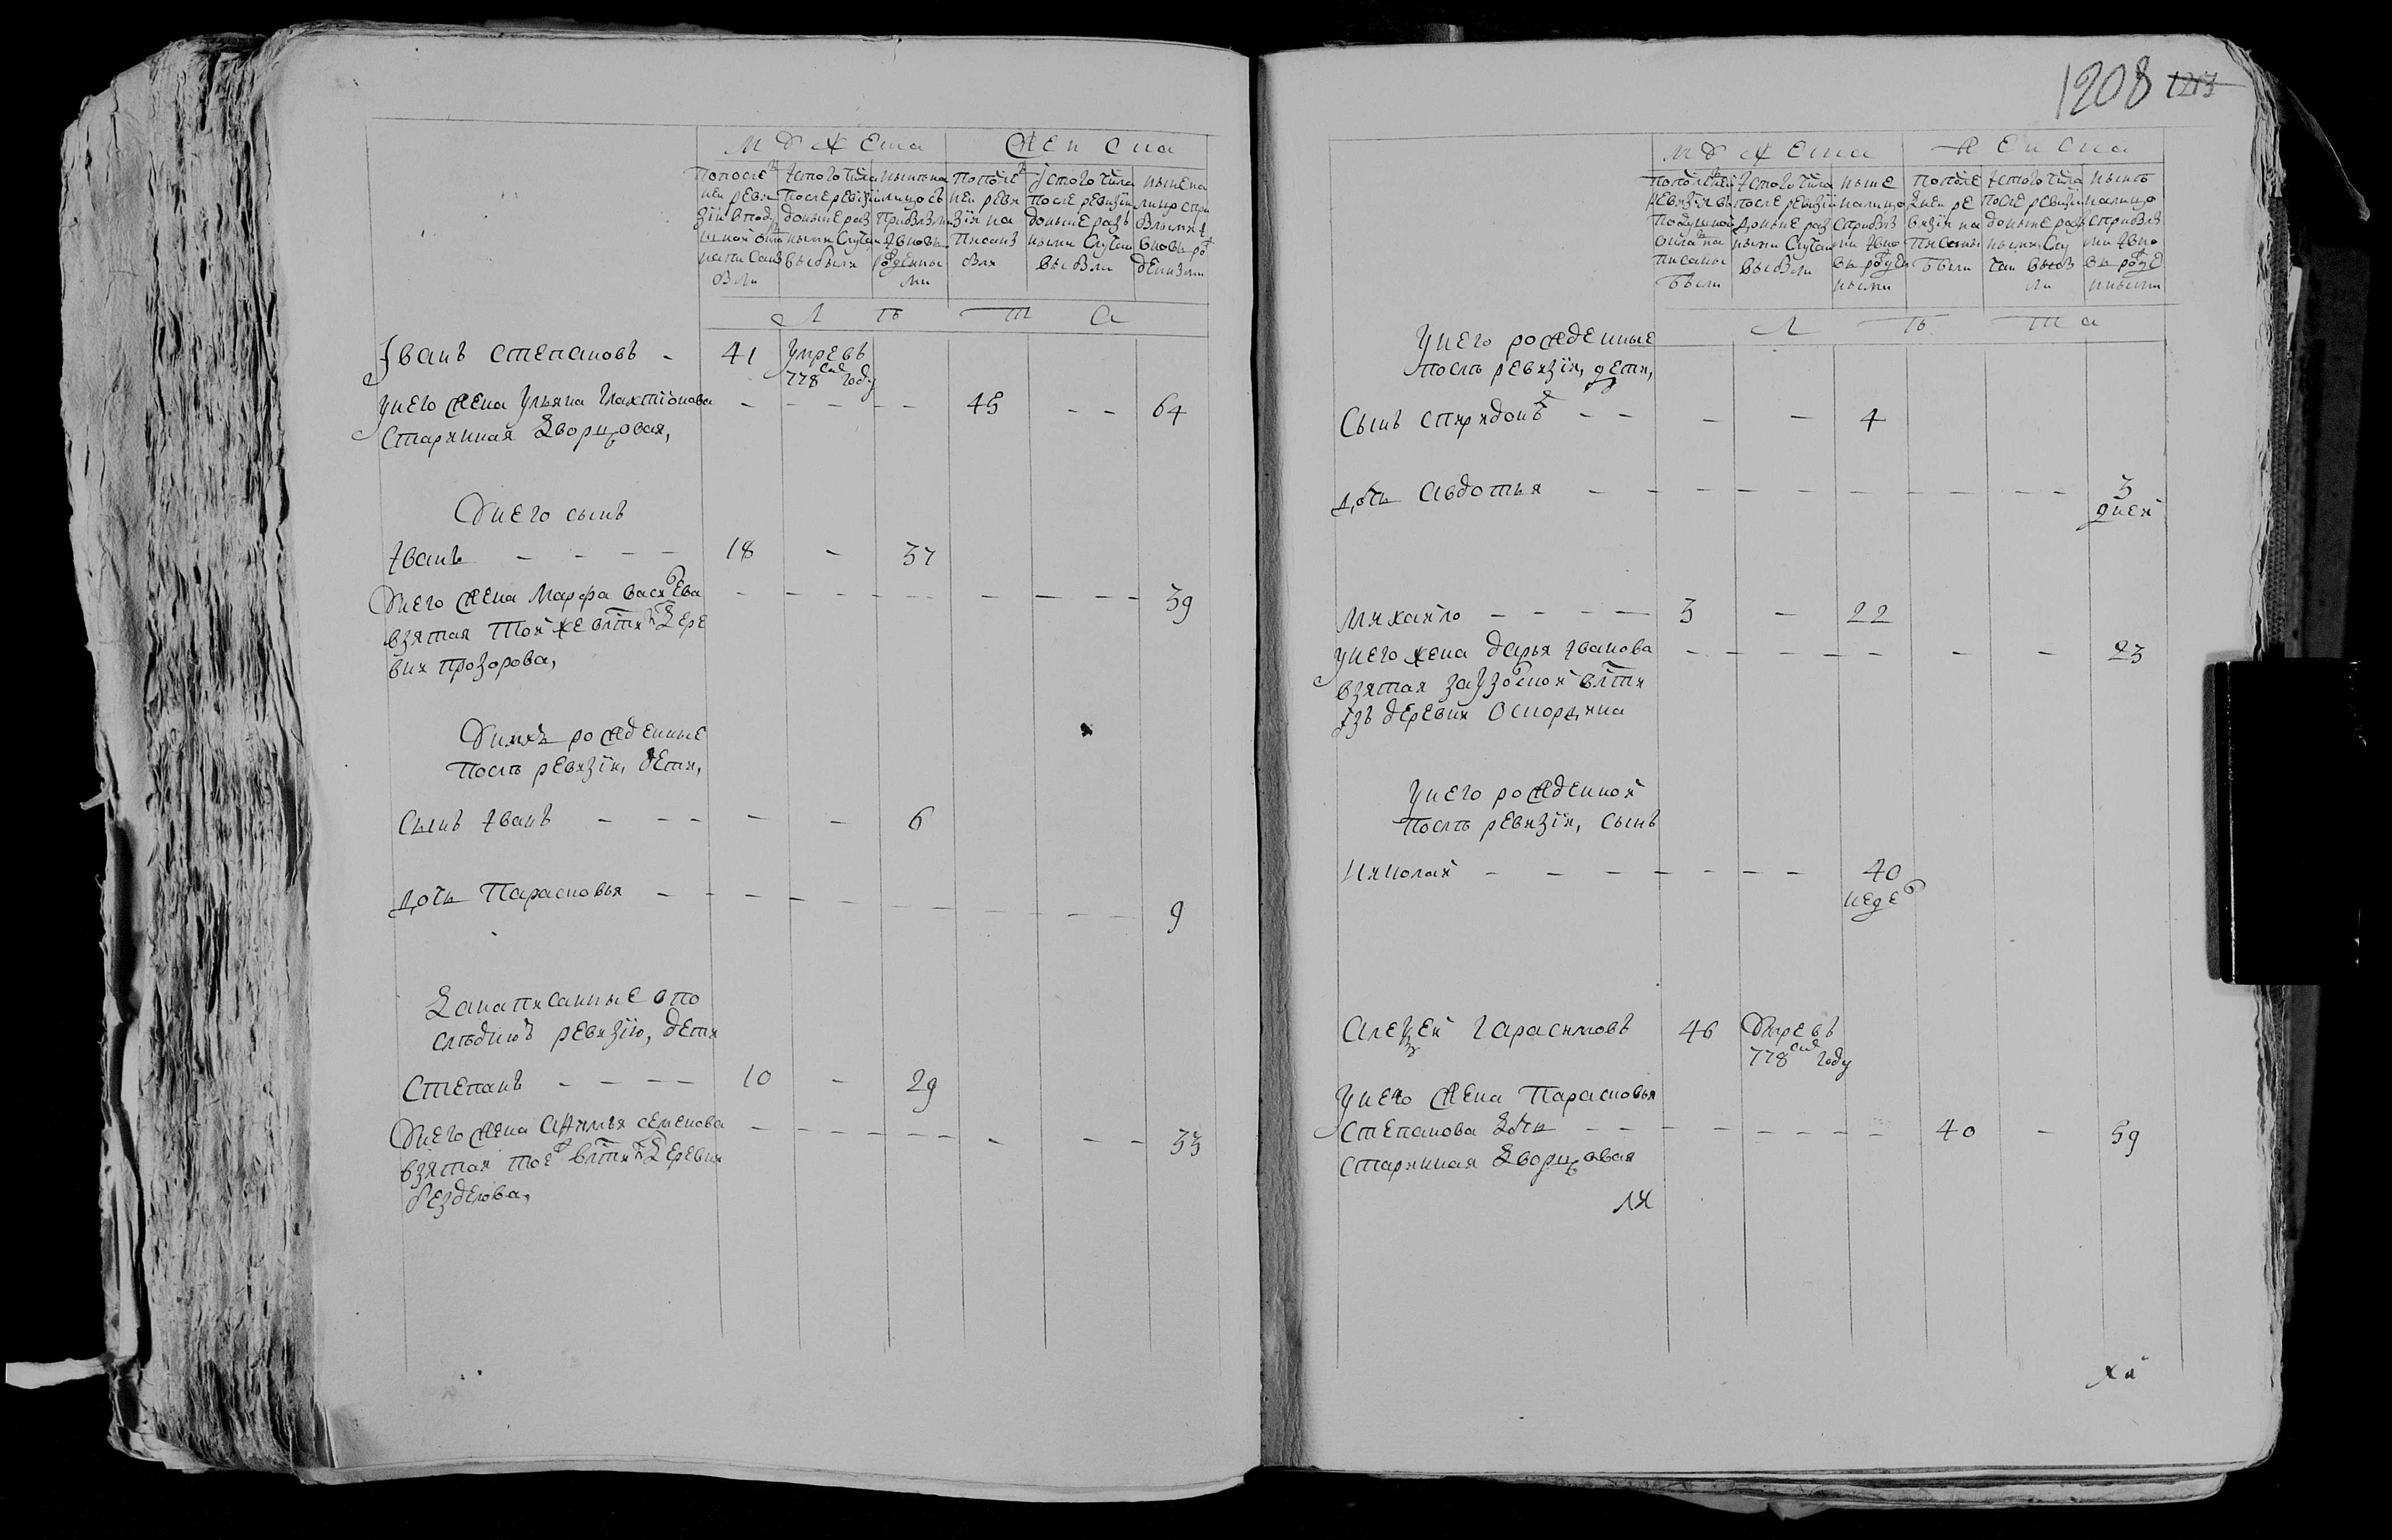 мужеска
женска
по послед
ней реви
зїи в поду
шной окла
написаны
бЫли
ис того числа
после ревизїи
доныне раз
ными случаи
выбыли
ныне на
лицо съ
прибылЫми
и вновь
рожденны
ми
по послед
ней реви
зїи на
писано
были
ис того числа
после ревизїи
доныне разъ
ными случаи
выбыли
ныне на
лицо с при
былыми и
вновь ро
жденными
лѣта
Иванъ степановъ - 41 умревъ
778 году
у него жена ульяна Галахтїонова - - - - - 45 - - 64
старинная дворцовая,
У него сынъ
иванъ - - - - 18 - 37
У него жена марфа васильева - - - - - - - - - 39
взятая той же влсти из дере
вни прозорова,
У нихъ рожденные
послѣ ревизїи, дети,
сынъ иванъ - - - - - 6
дочь Парасковья - - - - - - - - - - 9
Да написанные в по
слѣднюю ревизїю, дети
степанъ - - - - 10 - 29
У него жена Афимья семенова - - - - - - - - - 33
взятая тое ж влсти из деревни
безделова,
1208 1213
мужеска
женска
по последней
ревизїи въ
подушной
окладъ на
писаны
были
ис того числа
после ревизїи
доныне раз
ными случаи
выбыли
ныне
налицо
с прибылы
ми и вно
вь рожден
ными
по после
дней ре
визїи на
писаны
были
ис того числа
после ревизїи
доныне раз
ными слу
чаи выбы
ли
нынѣ
налицо
с прибылы
ми и вно
вь рожде
нными
лѣта
у него рожденные
послѣ ревизїи, дети,
сынъ спиридонъ - - - - 4
дочь авдотья - - - - - - - - - 3
дней
михайло - - - - 3 - 22
у него жена дарья иванова - - - - - - - 23
взятая заузолской влсти
изъ деревни Оскордина
у него рожденной
послѣ ревизїи, сынъ
николай - - - - - - - 40
недель
алексей Гарасимовъ 46 умревъ
778 году
у него жена Парасковья
степанова дочь - - - - - - - 40 - 59
старинная дворцовая